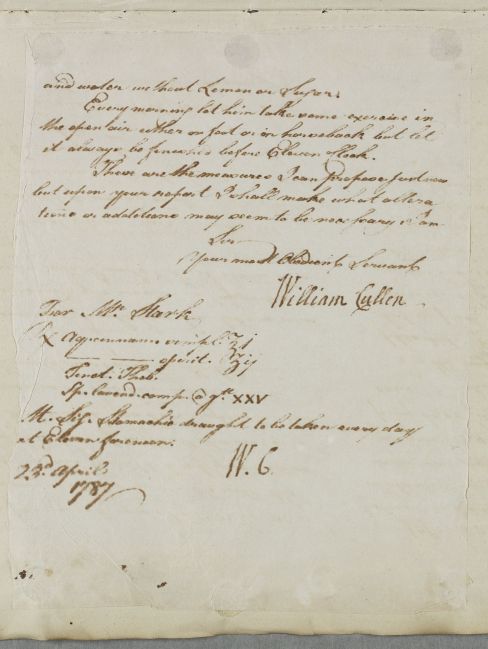 and water without Lemon or Sugar.
Every morning let him take some exercise in
the open air either on foot or on horseback but let
it always be finished before Eleven o'Clock.
These are the measures I can propose just now
but upon your report I shall make what altera
tions or additions may seem to be necessary. I am
Sir
Your most Obedient Servant
William Cullen
For Mr. Stark
℞ Aq. cinnamom. simpl. ℥j
— — spirit. ʒij
Tinct. Theb.
Sp. lavend. comp. @ gtt XXV
M. Sig. Stomachic draught to be taken every day
at Eleven forenoon.
W. C.
23d. April
1787